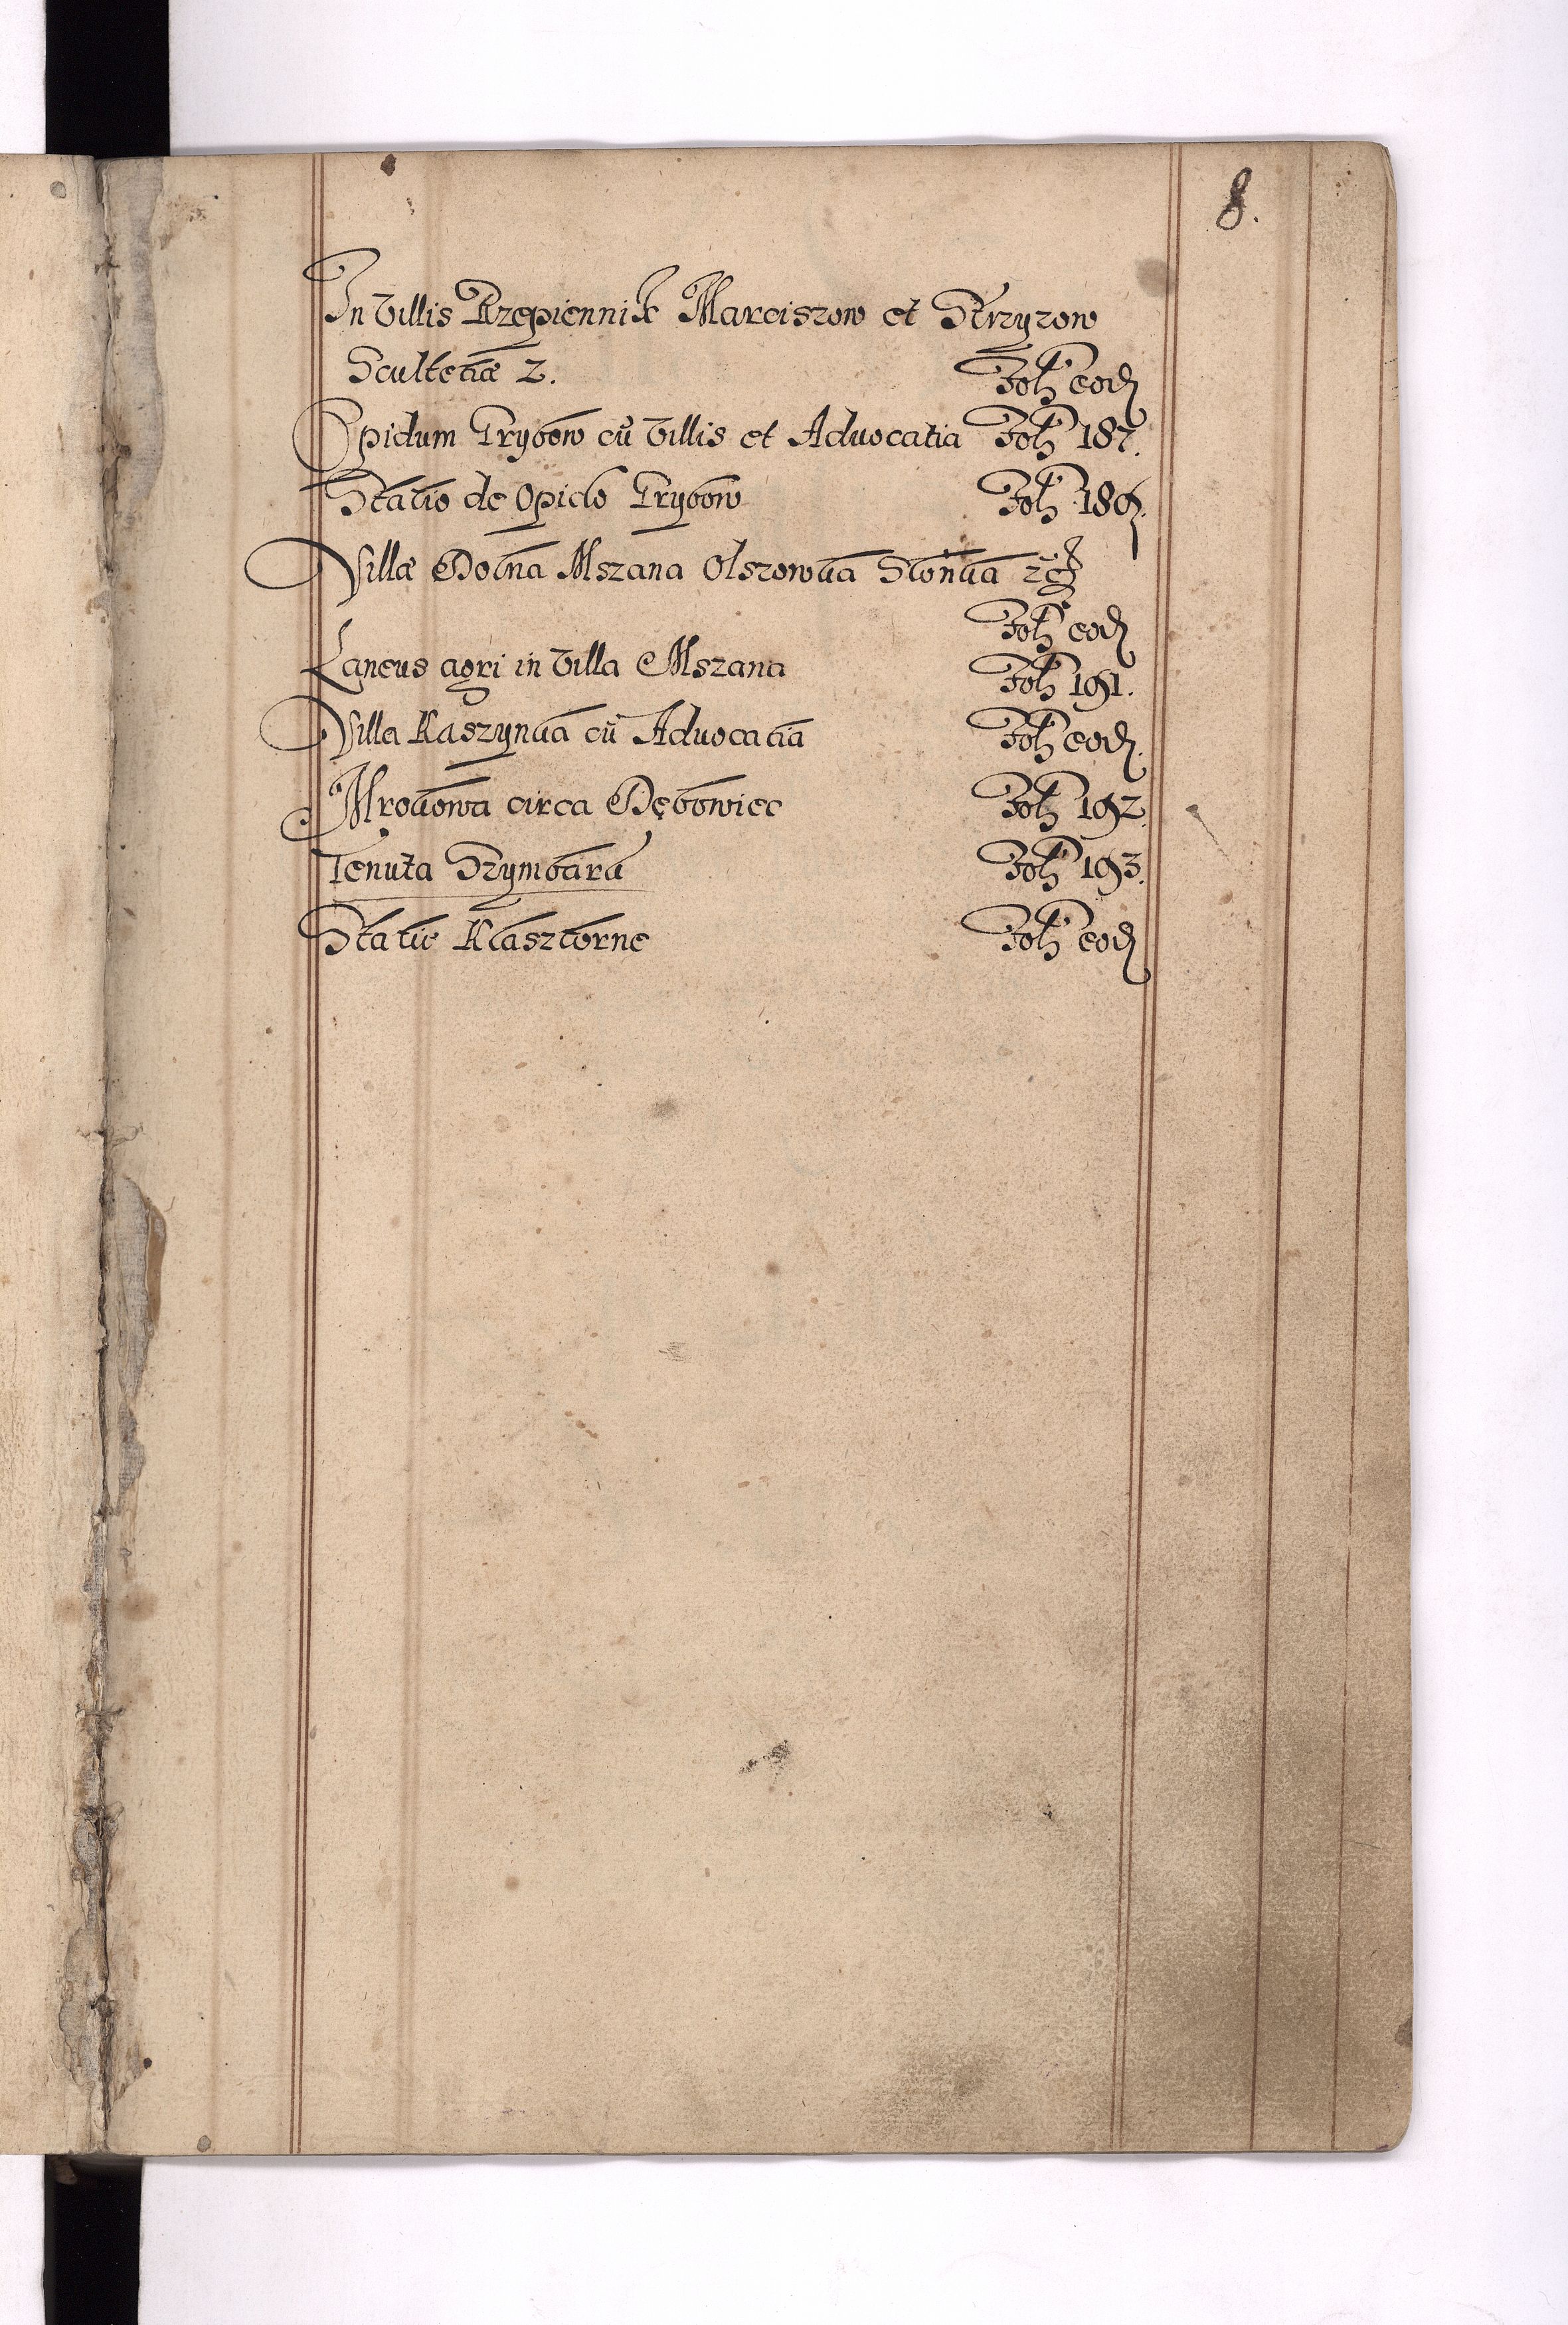 8.
In Villis Rzepiennik Marciszow et Strzyzow
Scultetiæ 2. Fol: eod
Opidum Grybow cũ Villis et Advocatia Fol: 187.
Statio de Opido Grybow Fol: 189.
Villæ Dolna Mszana Olszowka Słonka
Fol: eod
Laneus agri in Villa Mszana Fol: 191.
Villa Kaszynka cũ Advocatia Fol: eod.
Mrokowa circa Dębowiec Fol: 192.
Tenuta Szymbark Fol: 193.
Statie Klasztorne Fol: eod